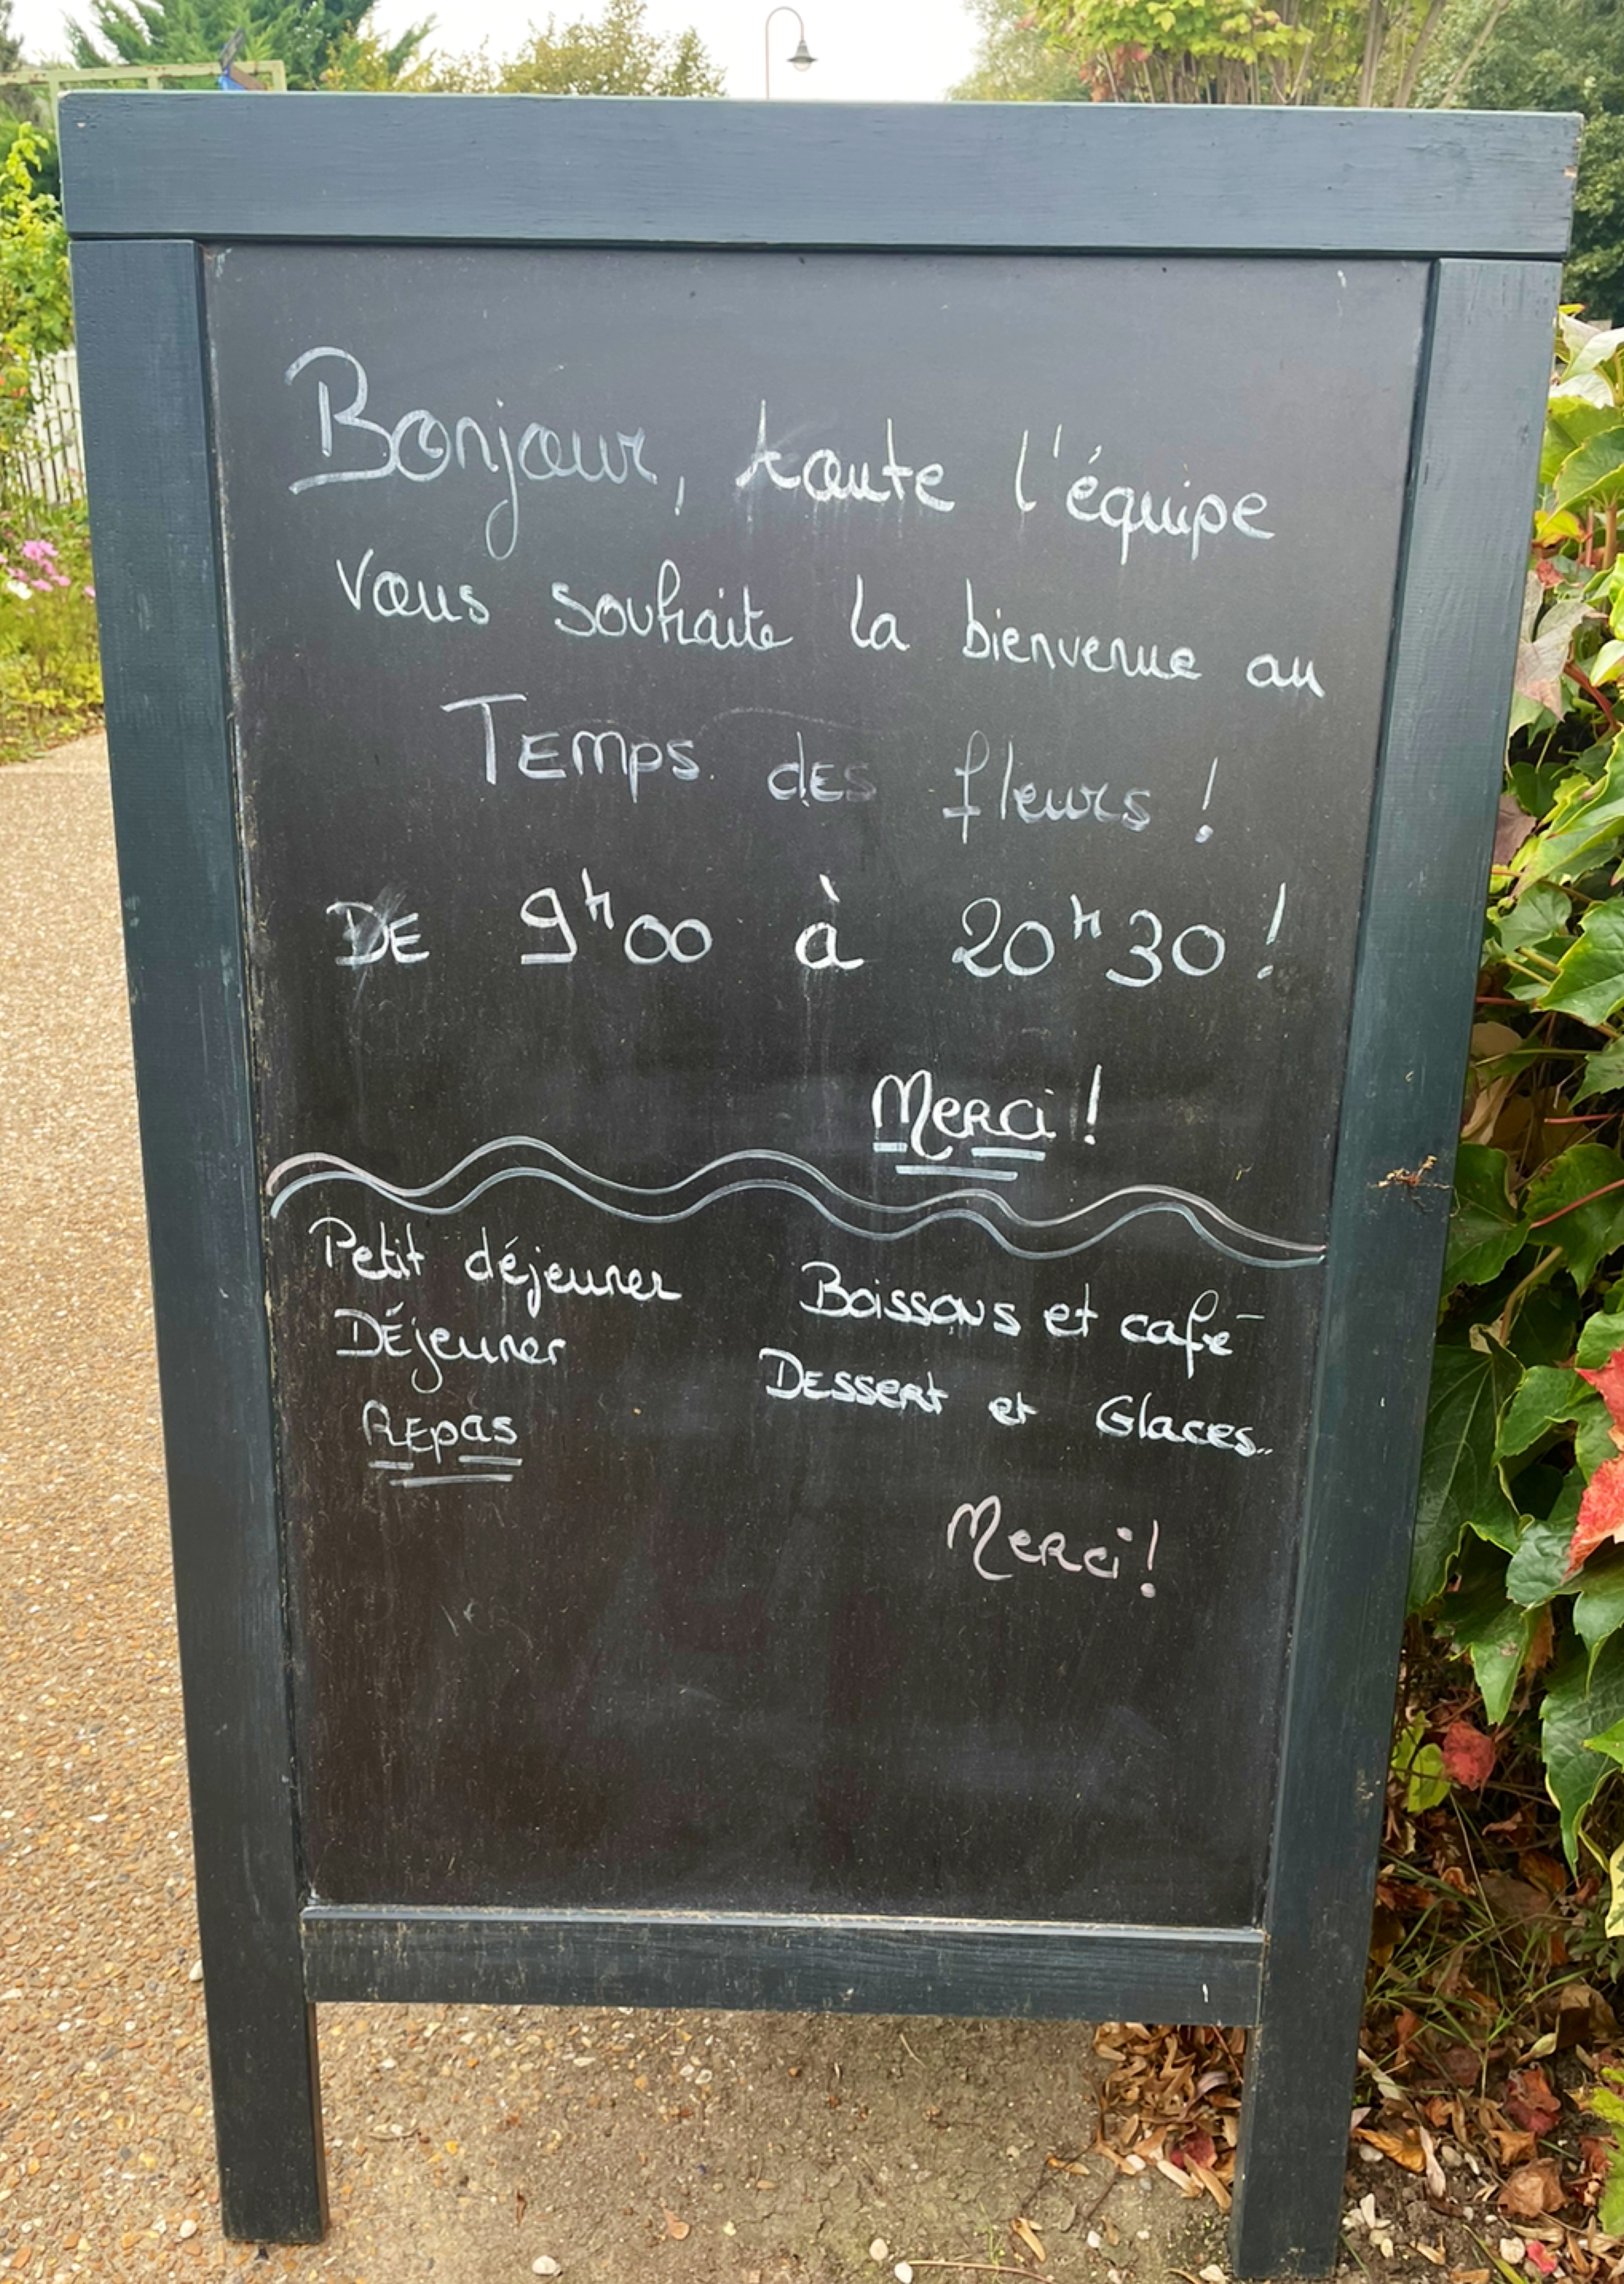 Bonjour, toute l'équipe
vous souhaite la bienvenue au
Temps des fleurs !
DE 9h00 à 20h30 !
Merci !
Petit déjeuner
Déjeuner
Repas
Boissons et café
Dessert et Glaces..
Merci !